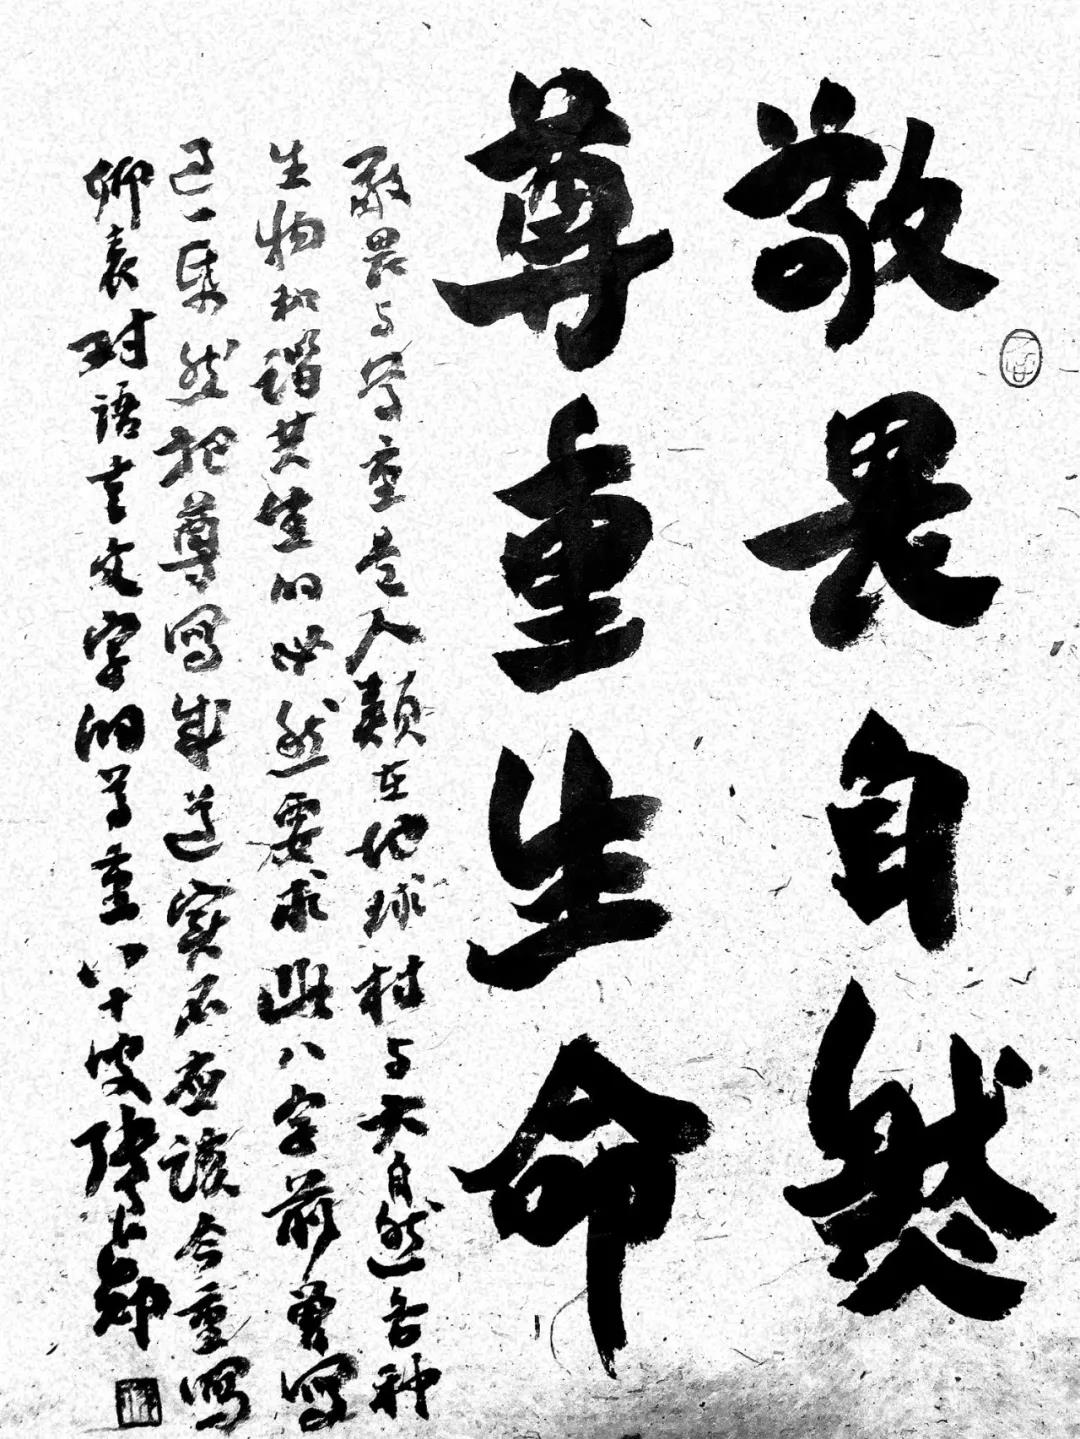 敬畏自然
尊重生命
敬畏与尊重是人類在地球村与大自然各种
生物和谐共生的必然要求此八字前曾寫
过一張然把尊寫成遵實不應该今重寫
聊表对语言文字的尊重八十叟